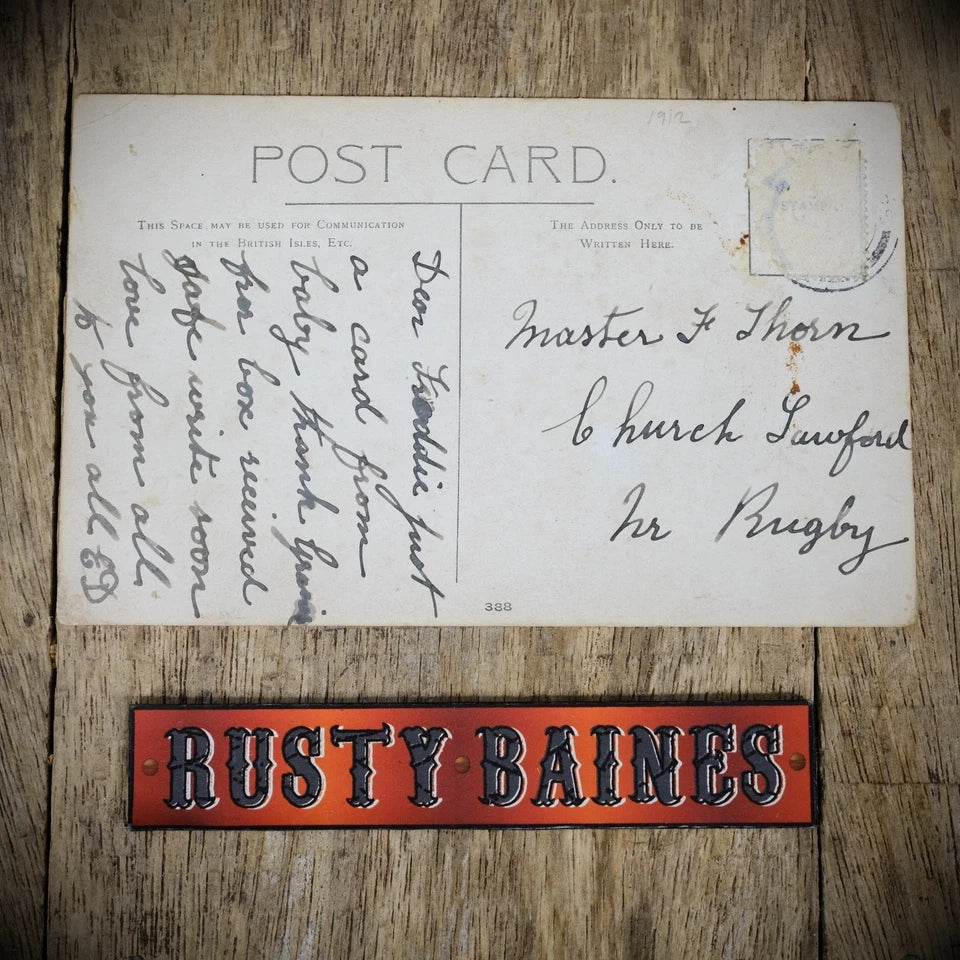 1912
POST CARD.
THIS SPACE MAY BE USED FOR COMMUNICATION
IN THE BRITISH ISLES, ETC.
THE ADDRESS ONLY TO BE
WRITTEN HERE.
STAMP
Dear Freddie just
a card from
baby thank
her box received
safe write soon
love from all.
to you all ED
Master F Thorn
Church Lawford
Nr Rugby
388
RUSTY BAINES